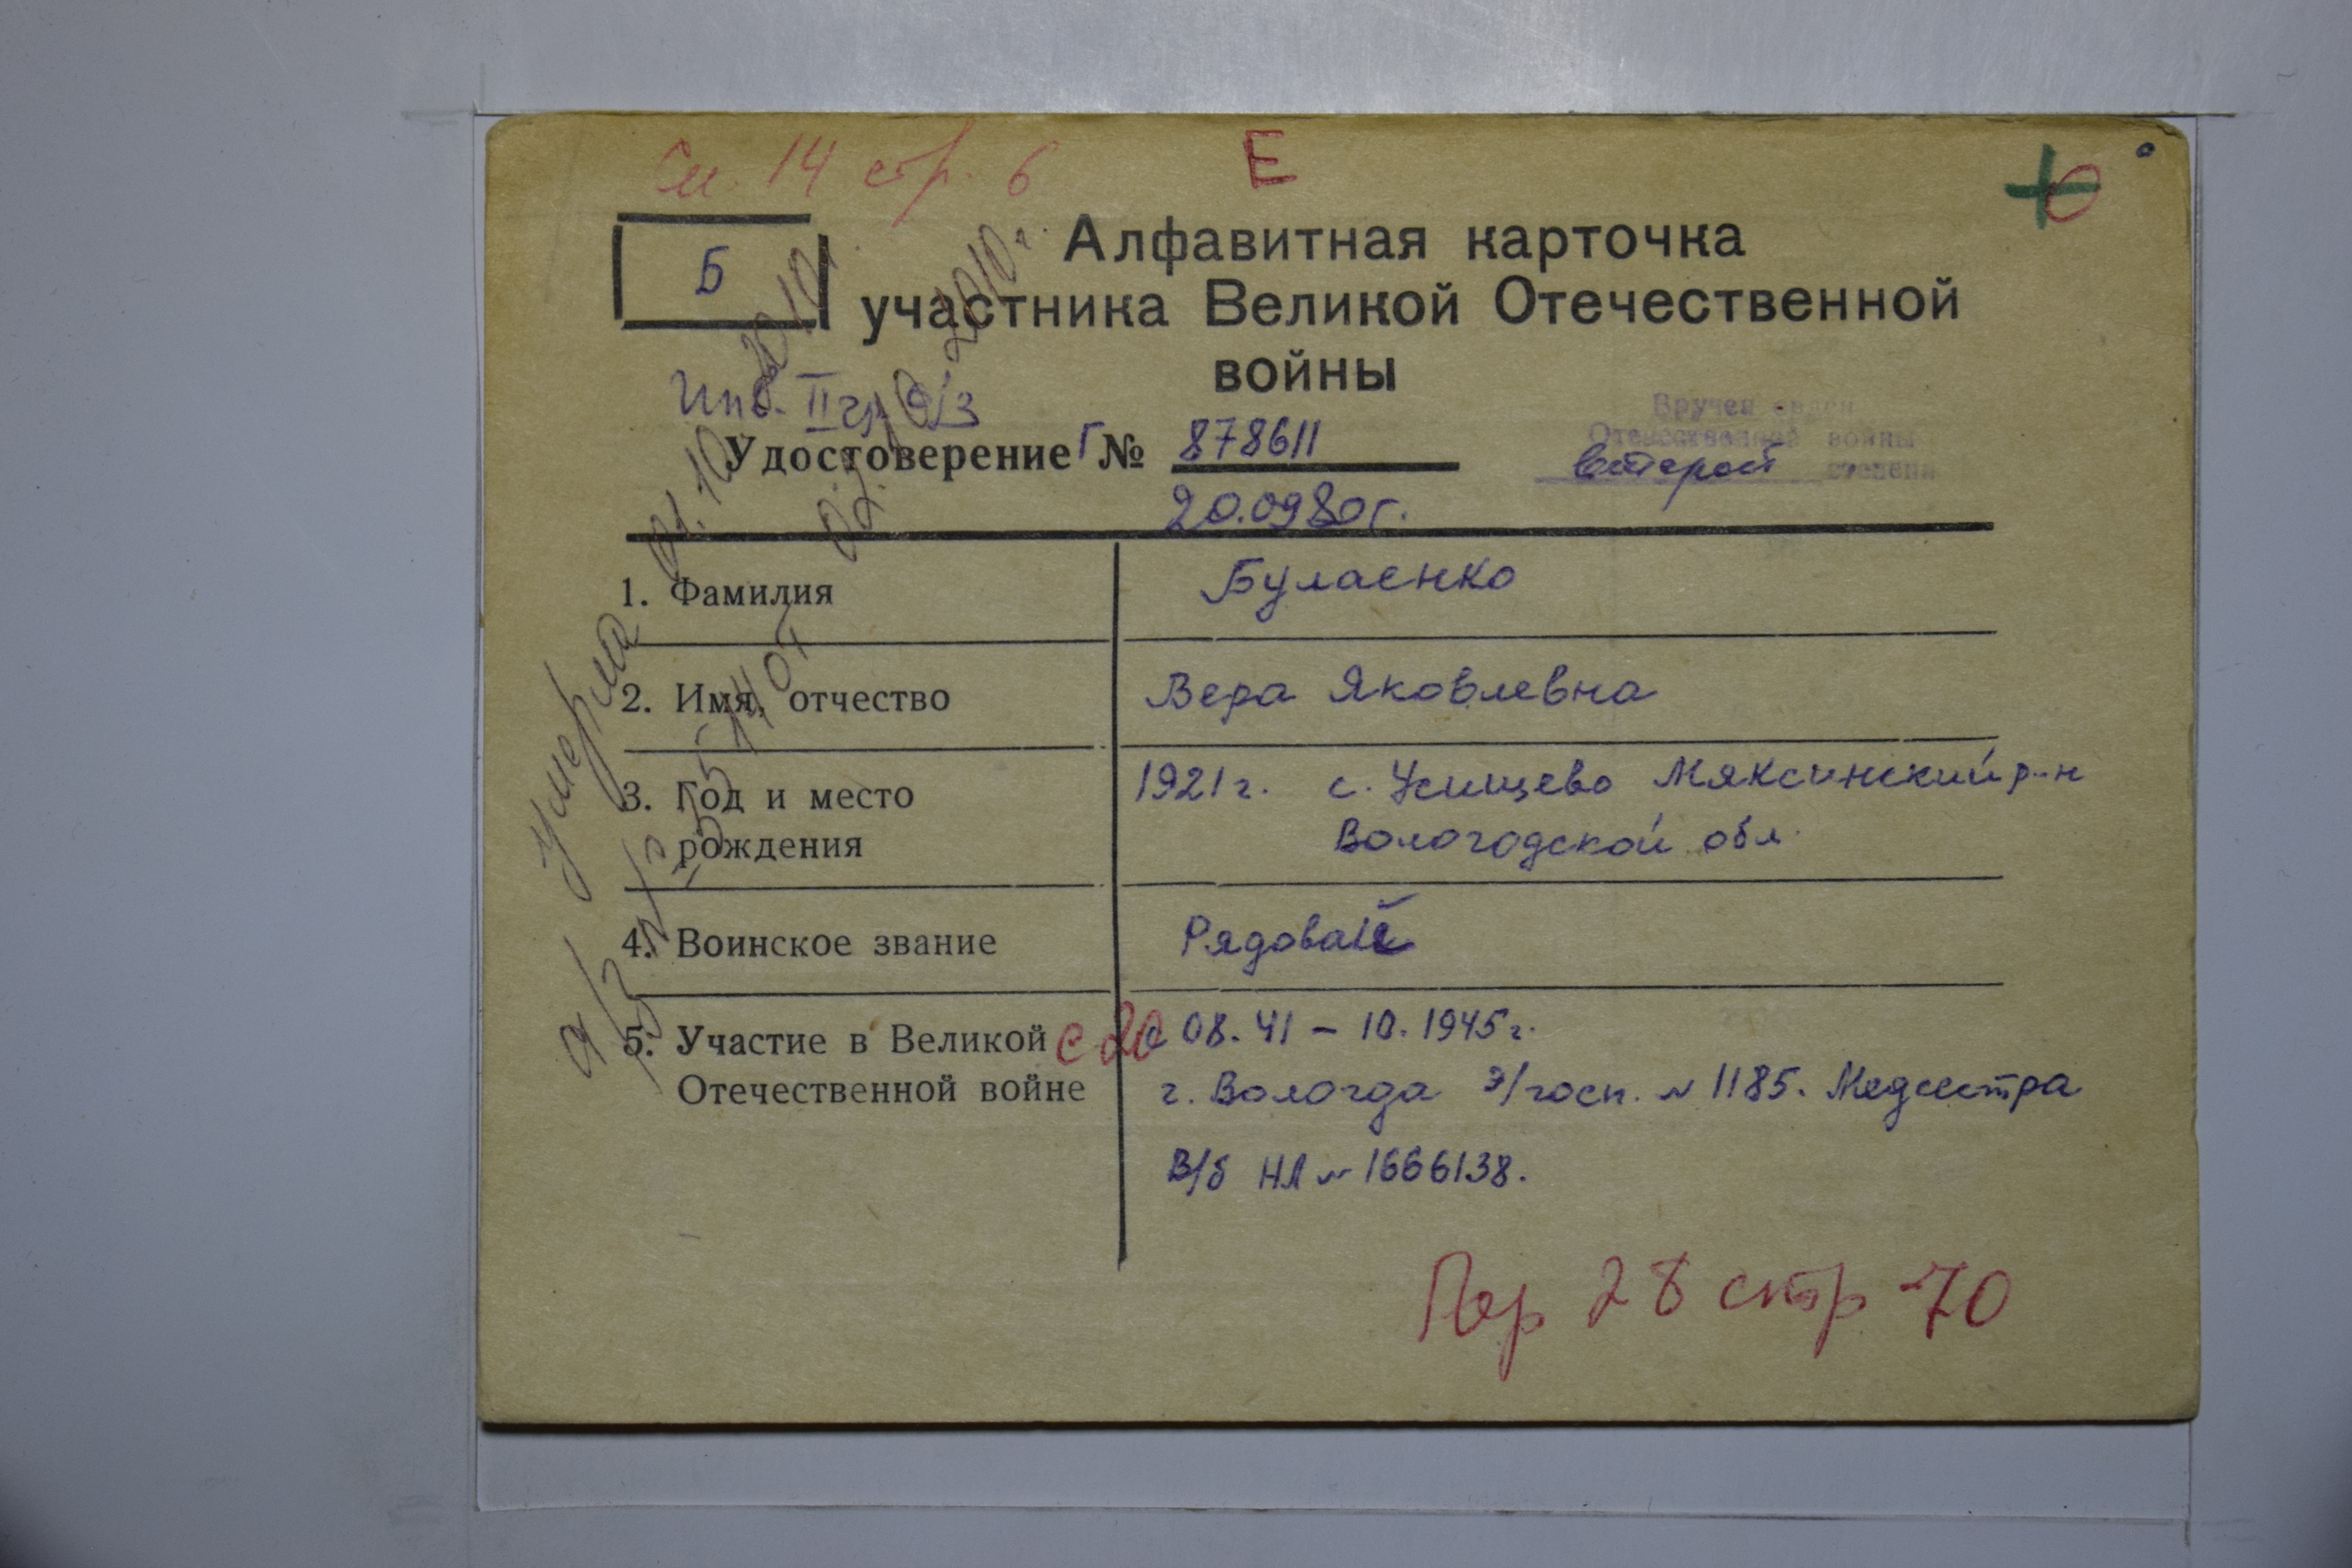 См. 14 стр. 6
Е
Б
Алфавитная карточка
участника Великой Отечественной
войны
Инв. II гр.
Удостоверение Г № 878611
20.0980г.
Вручен орден
Отечественной войны
второй степени
1. Фамилия Булаенко
2. Имя, отчество Вера Яковлевна
3. Год и место 1921г. с. Усищево Мяксинский р-н
рождения Вологодской обл.
4. Воинское звание Рядовой
5. Участие в Великой с 08.41 – 10.1945г.
Отечественной войне г. Вологда э/госп. N 1185. Медсестра
В/б НЛ N 1666138.
Пер 28 стр 70
умерла 01.10. 2010г
2010г.